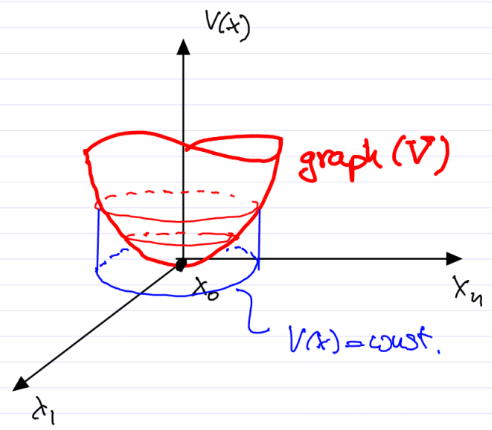 V(x)
graph (V)
x₀
xₙ
V(x)=const.
x₁